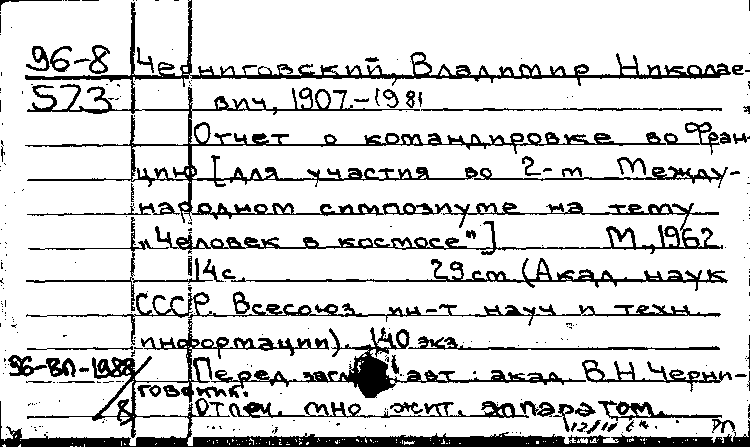 96-8 Черниговский, Владимир Николае-
573 вич, 1907.-1981
Отчет о командировке во Фран-
цию [для участия во 2-м Между-
народном симпозиуме на тему
„Человек в космосе"] М., 1962
14с. 29 см (Акад. наук
СССР. Всесоюз. ин-т науч и техн.
информации). 140 экз.
96-ВП-1988/8 Перед загл авт: акад. В.Н. Черни-
говский.
Отпеч. мно жит. аппаратом.